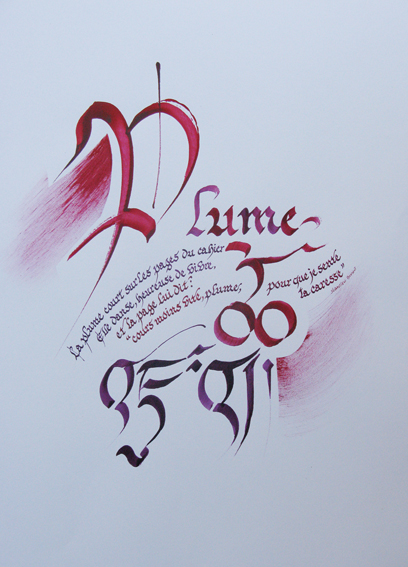 Plume
La plume court sur les pages du cahier
Elle danse, heureuse de vivre,
et la page lui dit :
"cours moins vite, plume,
pour que je sente
la caresse"